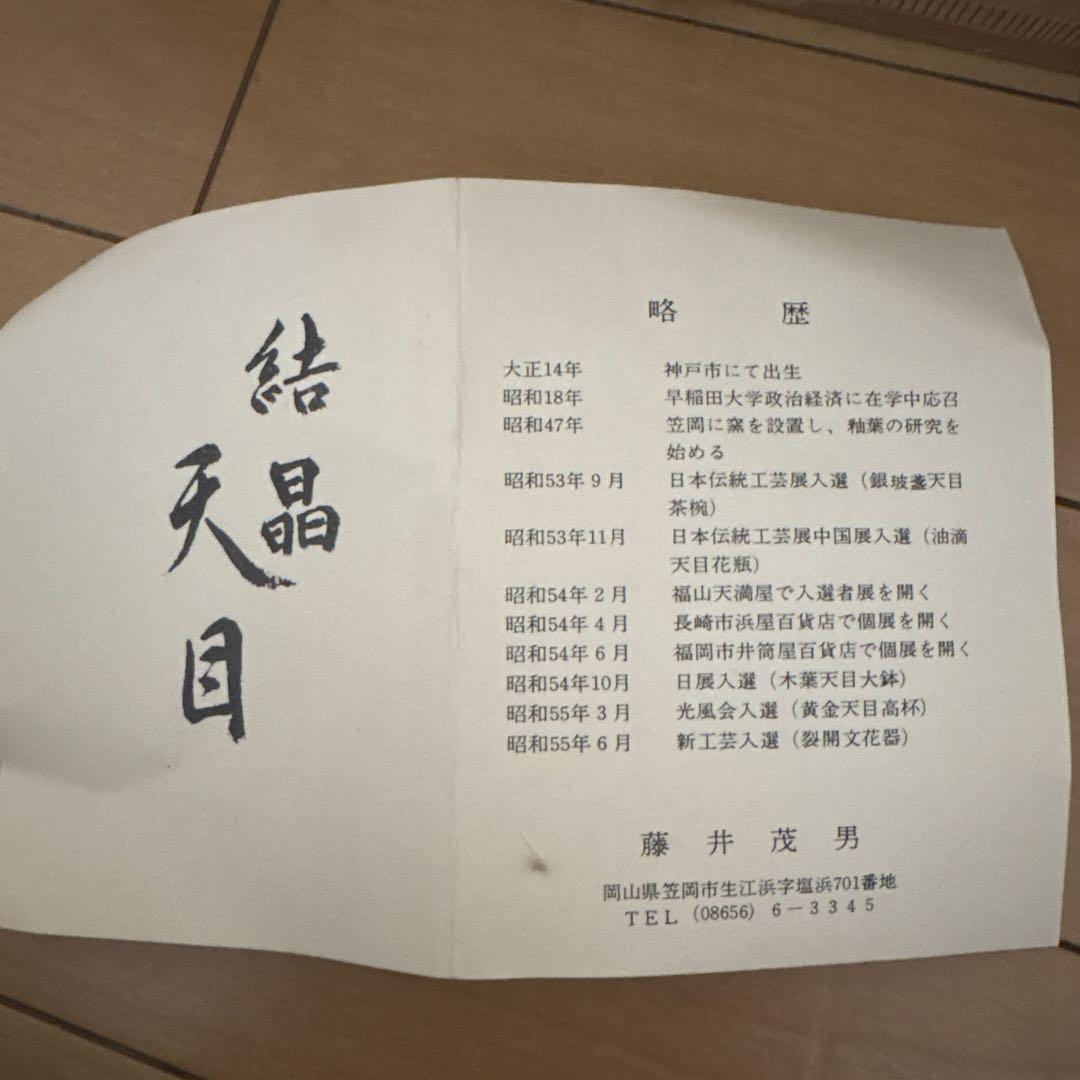 結晶
天目
略　　歴
大正14年　神戸市にて出生
昭和18年　早稲田大学政治経済に在学中応召
昭和47年　笠岡に窯を設置し、釉葉の研究を
始める
昭和53年9月　日本伝統工芸展入選（銀玻盞天目
茶椀）
昭和53年11月　日本伝統工芸展中国展入選（油滴
天目花瓶）
昭和54年2月　福山天満屋で入選者展を開く
昭和54年4月　長崎市浜屋百貨店で個展を開く
昭和54年6月　福岡市井筒屋百貨店で個展を開く
昭和54年10月　日展入選（木葉天目大鉢）
昭和55年3月　光風会入選（黄金天目高杯）
昭和55年6月　新工芸入選（裂開文花器）
藤井茂男
岡山県笠岡市生江浜字塩浜701番地
TEL（08656）6－3345